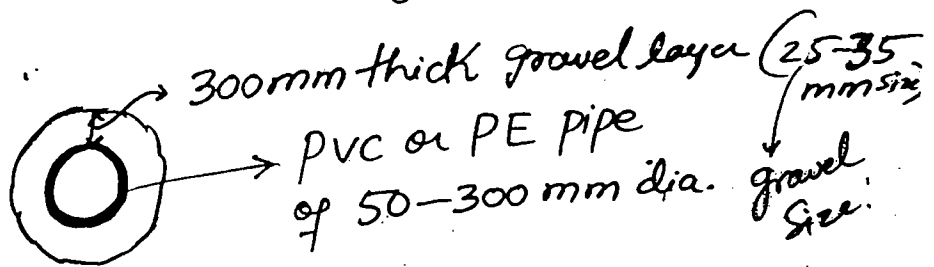 300mm thick gravel layer (25-35
mm size,
PVC or PE pipe
of 50-300 mm dia. gravel
size.